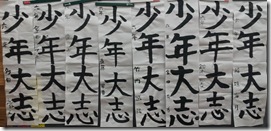 少年大志
少年大志
少年大志
少年大志
少年大志
少年大志
少年大志
少年大志